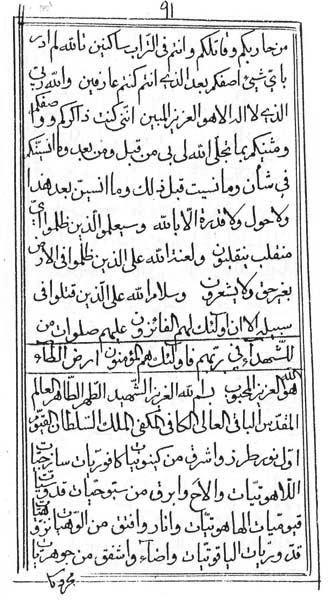 ٩١
من حاربكم وقاتلكم وانتم فى التراب ساكنين تالله لم ادر
باى شىء اصفكم بعد الذى انتم كنتم عارفين والله ربى
الذى لا اله الا هو العزيز المبين اننى كنت ذاكركم وواصفكم
ومثنيكم بما تجلى الله لى بى من قبل ومن بعد وما نسيتكم
فى شأن وما نسيت قبل ذلك وما انسين بعد هذا
ولا حول ولا قدرة الا بالله وسيعلموا الذين ظلموا اى
منقلب ينقلبون ولعنة الله على الذين ظلموا فى الارض
بغير حق ولا يشعرون وسلام الله على الذين قتلوا فى
سبيله الا ان اولئك لهم الفائزون عليهم صلوات من
للشهداء فى ربهم فاولئك هم المؤمنون ارض الطاء
الله
هو العزيز المحبوب بسم الله العزيز الشهيد الظهر الظاهر العالم
المقدس الباقى العالى الكافى المكفى الملك السلطان القيوم
اول نور طرز واشرق من كينونيات كافوريات ساذجيات
اللاهوتيات والاح وابرق من سبوحيات قدوسيات
قيوميات الهاهوتيات وانار وافتق من
قدوريات الياقوتيات واضاء واشفق من جوهريات
مجردكا